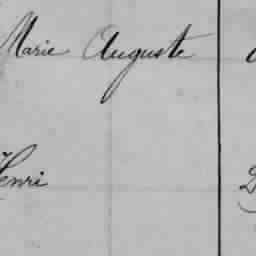 Marie Auguste
Henri